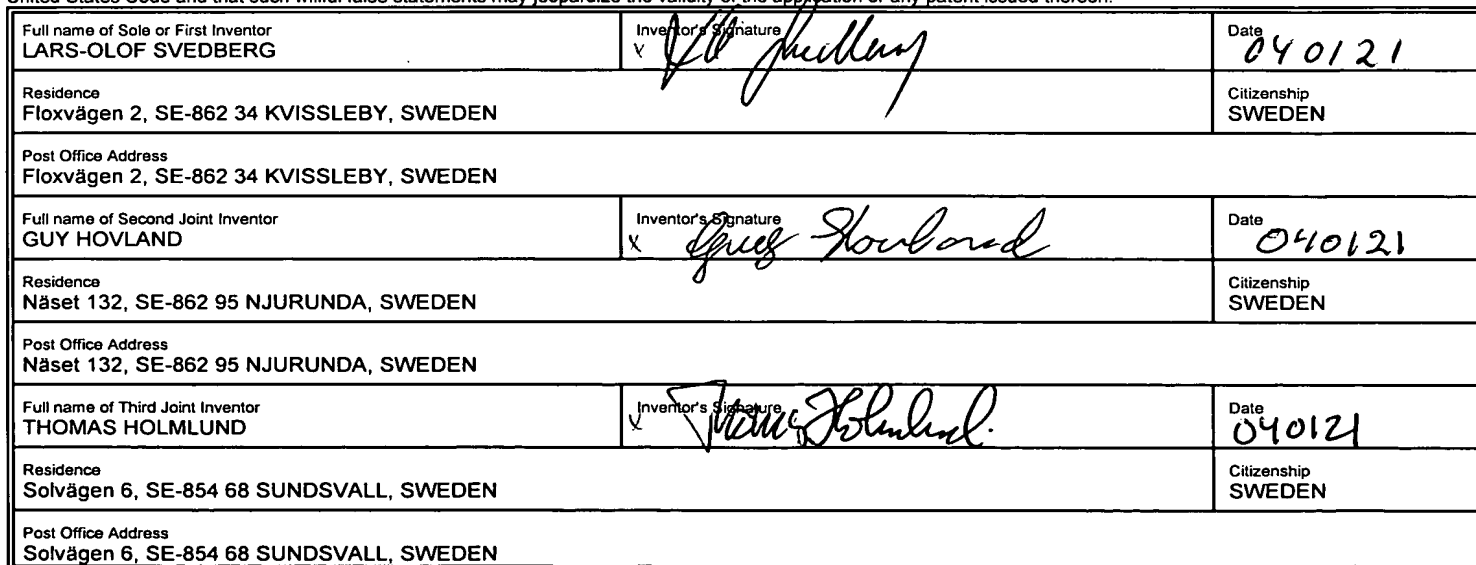 United States Code and that such willful false statements may jeopardize the validity of the application or any patent issued thereon.
Full name of Sole or First Inventor
LARS-OLOF SVEDBERG
Inventor's Signature
x
Date
040121
Residence
Floxvägen 2, SE-862 34 KVISSLEBY, SWEDEN
Citizenship
SWEDEN
Post Office Address
Floxvägen 2, SE-862 34 KVISSLEBY, SWEDEN
Full name of Second Joint Inventor
GUY HOVLAND
Inventor's Signature
x Guy Hovland
Date
040121
Residence
Näset 132, SE-862 95 NJURUNDA, SWEDEN
Citizenship
SWEDEN
Post Office Address
Näset 132, SE-862 95 NJURUNDA, SWEDEN
Full name of Third Joint Inventor
THOMAS HOLMLUND
Inventor's Signature
x Thomas Holmlund
Date
040121
Residence
Solvägen 6, SE-854 68 SUNDSVALL, SWEDEN
Citizenship
SWEDEN
Post Office Address
Solvägen 6, SE-854 68 SUNDSVALL, SWEDEN